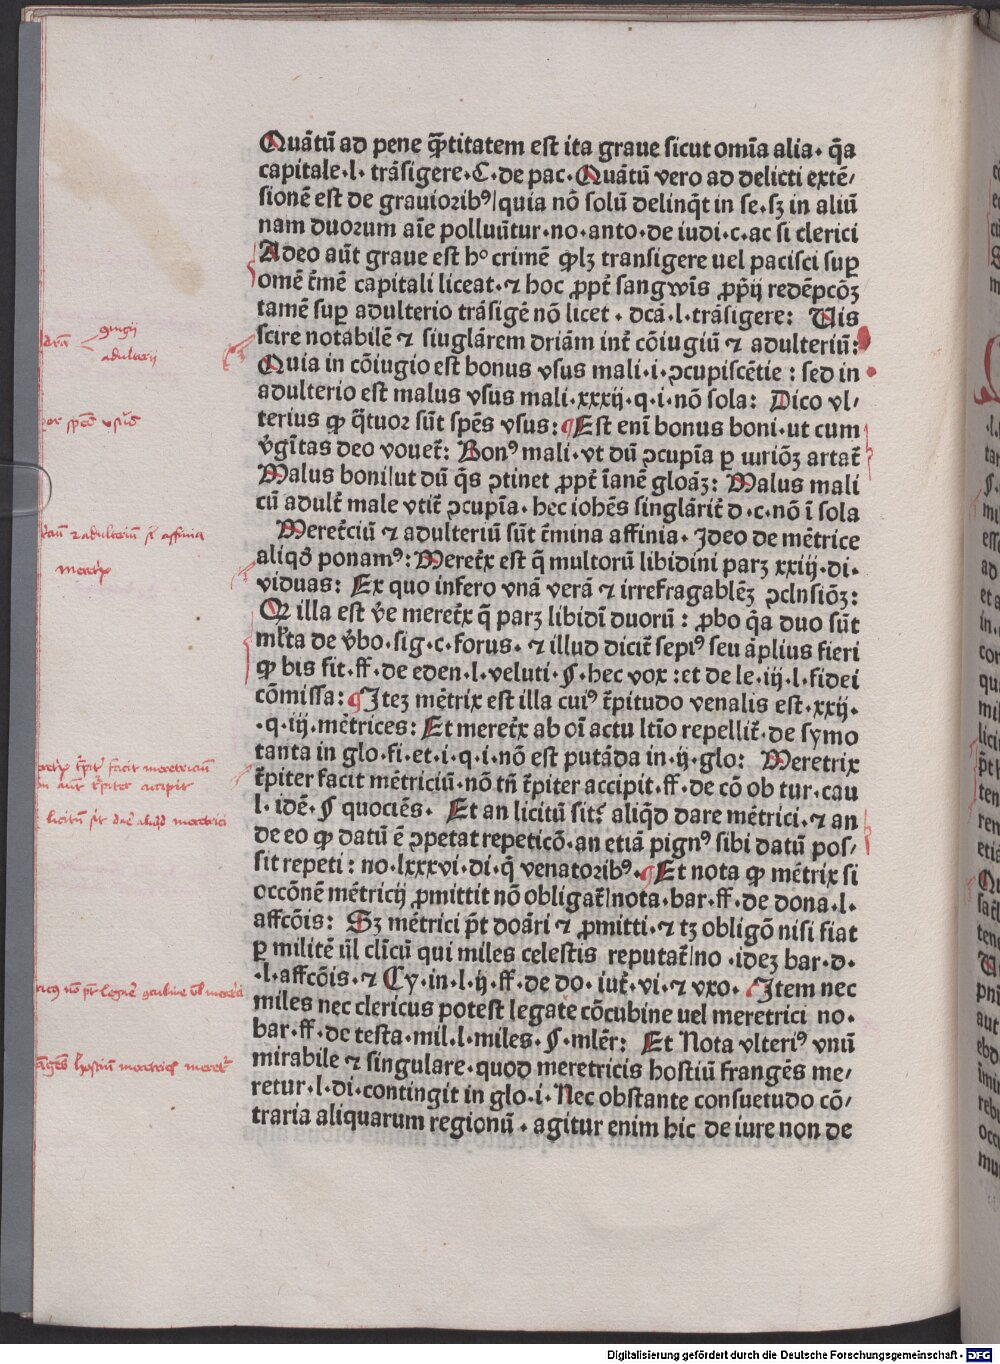 Quãtũ ad pene q̃titatem est ita graue sicut omĩa alia. q̃a
capitale.l. trãsigere.C. de pac. Quãtũ vero ad delicti extẽ/
sionẽ est de grauioribꝰ|quia nõ solũ delinq̃t in se.sꝫ in aliũ
nam duorum aĩe polluũtur.no.anto.de iudi.c.ac si clerici
Adeo aũt graue est hͦ crimẽ ꝙlꝫ transigere uel pacisci suꝑ
omẽ t̃mẽ capitali liceat.⁊ hoc ꝓpt̃ sangwĩs ꝓp̃ij redẽpcõꝫ
tamẽ suꝑ adulterio trãsigẽ nõ licet . dcã.l.trãsigere: Uis
scire notabilẽ ⁊ siuglãrem driãm int̃ cõiugiũ ⁊ adulteriũ:
Quia in cõiugio est bonus vsus mali.i.ꝯcupiscẽtie : sed in
adulterio est malus vsus mali.xxxij.q.i.nõ sola: Dico vl/
terius ꝙ q̃tuor sũt spẽs vsus: ¶Est enĩ bonus boni.ut cum
v̓gĩtas deo vouet̃: Bonꝰ mali.vt dũ ꝯcupĩa ꝑ uxiõꝫ artat̃
Malus boni|ut dũ q̃s ꝯtinet ꝓpt̃ ĩanẽ gloãꝫ: Malus mali
cũ adult̃ male vtit̃ ꝯcupĩa. hec iohẽs singlãrit̃ d.c.nõ ĩ sola
Meret̃ciũ ⁊ adulteriũ sũt t̃mina affinia. Ideo de mẽtrice
aliqd̓ ponamꝰ: Meret̃x est q̃ multorũ libidini parꝫ xxiij.di.
viduas: Ex quo infero vnã verã ⁊ irrefragablẽꝫ ꝯclnsiõꝫ:
Qꝛ illa est v̓e meret̃x q̃ parꝫ libidĩ duorũ : ꝓbo q̃a duo sũt
ml̃ta de v̓bo.sig.c.forus. ⁊ illud dicit̃ sepiꝰ seu ãplius fieri
ꝙ bis fit.ff.de eden.l.veluti.§.hec vox :et de le.iij.l.fidei
cõmissa: ¶Iteꝫ mẽtrix est illa cuiꝰ t̃pitudo venalis est.xxij.
.q.iij.mẽtrices: Et meret̃x ab oĩ actu ltĩo repellit̃.de symo
tanta in glo.fi.et.i.q.i.nõ est putãda in.ij.glo: Meretrix
t̃piter facit mẽtriciũ.nõ tñ t̃piter accipit.ff.de cõ ob tur.cau
l.idẽ.§ quociẽs. Et an licitũ sit⸵ aliqd̓ dare mẽtrici.⁊ an
de eo ꝙ datũ ẽ ꝯpetat repeticõ.an etiã pignꝰ sibi datũ pos/
sit repeti: no.lxxxvi.di.q̃ venatoribꝰ. ¶Et nota ꝙ mẽtrix si
occõnẽ mẽtricij ꝓmittit nõ obligat̃|nota.bar.ff.de dona.l.
affcõis: Sꝫ mẽtrici p̃t doãri ⁊ ꝓmitti.⁊ tꝫ obligõ nisi fiat
ꝑ militẽ ũl clĩcũ qui miles celestis reputat̃|no.ideꝫ bar.d.
.l.affcõis.⁊ Cy.in.l.ij.ff.de do.iut̃.vi.⁊ vxo. ¶Item nec
miles nec clericus potest legate cõcubine uel meretrici no.
bar.ff.de testa.mil.l.miles.§.mlẽr: Et Nota vlteriꝰ vnũ
mirabile ⁊ singulare.quod meretricis hostiũ frangẽs me/
retur.l.di.contingit in glo.i. Nec obstante consuetudo cõ/
traria aliquarum regionũ . agitur enim hic de iure non de
adulterij
meret̃x
Digitalisierung gefördert durch die Deutsche Forschungsgemeinschaft - DFG